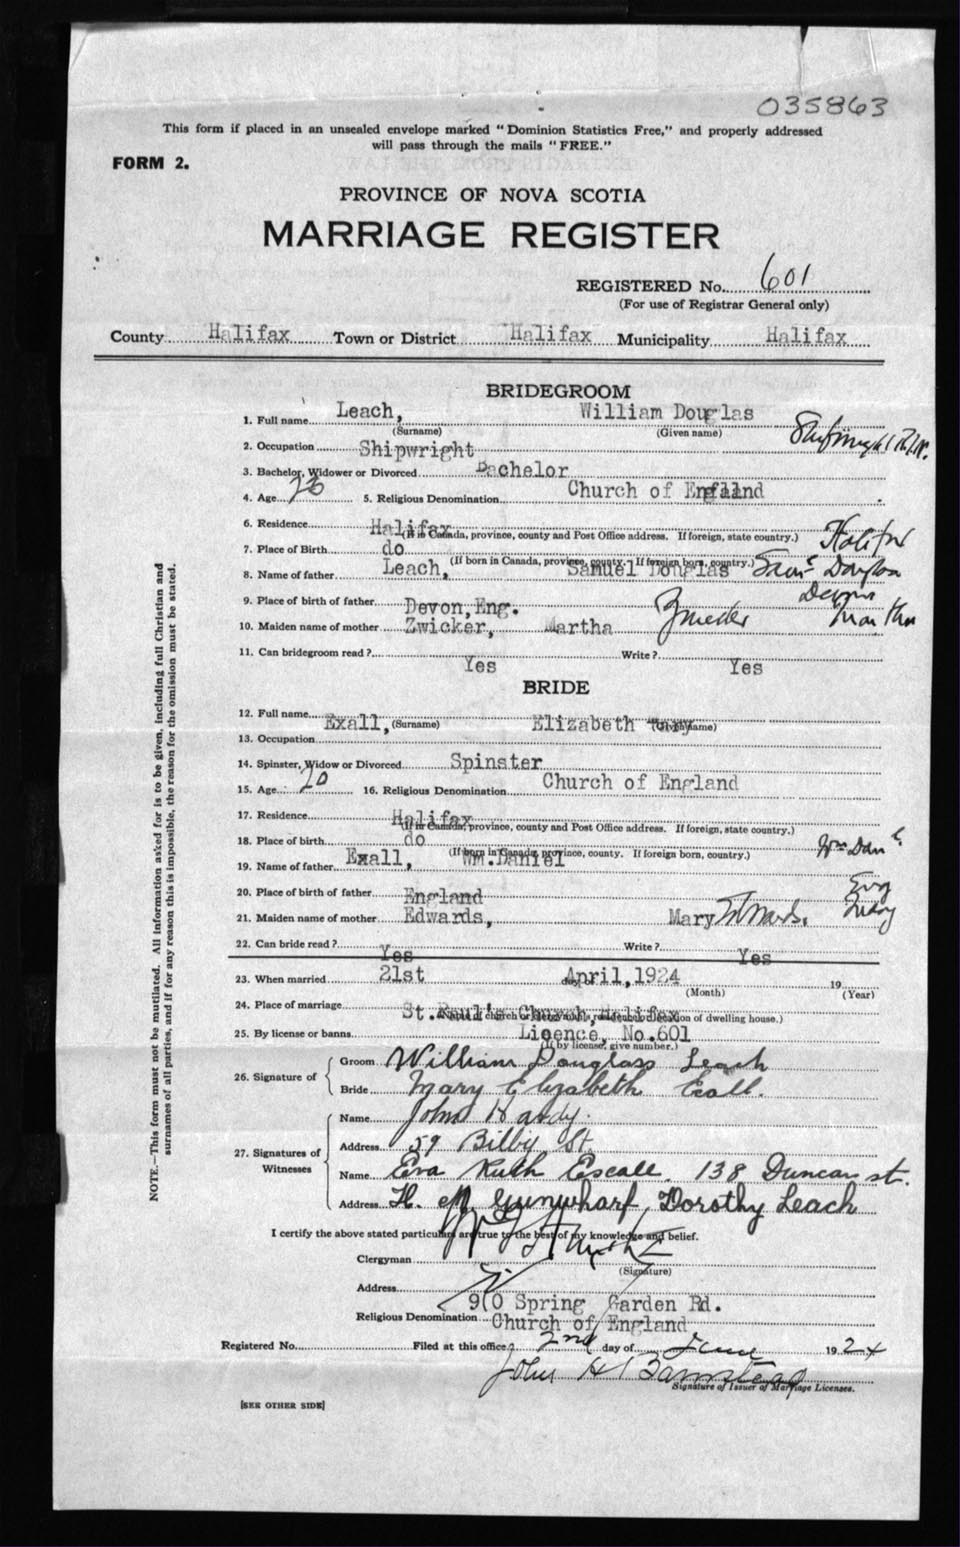 035863
This form if placed in an unsealed envelope marked "Dominion Statistics Free," and properly addressed
will pass through the mails "FREE."
FORM 2.
PROVINCE OF NOVA SCOTIA
MARRIAGE REGISTER
REGISTERED No. 601
(For use of Registrar General only)
County Halifax Town or District Halifax Municipality Halifax
BRIDEGROOM
1. Full name Leach, William Douglas
(Surname) (Given name)
2. Occupation Shipwright
3. Bachelor, Widower or Divorced Bachelor
4. Age 5. Religious Denomination Church of England
6. Residence Halifax
(If in Canada, province, county and Post Office address. If foreign, state country.) Halifax
7. Place of Birth do
(If born in Canada, province, county. If foreign born, country.)
8. Name of father Leach, Samuel Douglas Saml Douglas
9. Place of birth of father Devon, Eng. Devon
10. Maiden name of mother Zwicker, Martha Martha
11. Can bridegroom read ? Yes Write ? Yes
BRIDE
12. Full name Exall, (Surname) Elizabeth Mary (Given name)
13. Occupation
14. Spinster, Widow or Divorced Spinster
15. Age 20 16. Religious Denomination Church of England
17. Residence Halifax
(If in Canada, province, county and Post Office address. If foreign, state country.)
18. Place of birth do
(If born in Canada, province, county. If foreign born, country.) Wm Danl
19. Name of father Exall, Wm. Daniel
20. Place of birth of father England Eng
21. Maiden name of mother Edwards, Mary Edwards. Mary
22. Can bride read ? Yes Write ? Yes
23. When married 21st day of April, 1924 19
(Month) (Year)
24. Place of marriage St. Paul's Church, Halifax
25. By license or banns Licence, No. 601
(If by license, give number.)
26. Signature of
Groom William Douglass Leach
Bride Mary Elizabeth Exall.
27. Signatures of Witnesses
Name John Hardy.
Address 59 Bilby St.
Name Eva Ruth Escall. 138 Duncan st.
Address H. M Gunwharf, Dorothy Leach
I certify the above stated particulars are true to the best of my knowledge and belief.
Clergyman
(Signature)
Address
90 Spring Garden Rd.
Religious Denomination Church of England
Registered No. Filed at this office 2nd day of June 1924
John H
Signature of Issuer of Marriage Licenses.
[SEE OTHER SIDE]
NOTE.—This form must not be mutilated. All information asked for is to be given, including full Christian and
surnames of all parties, and if for any reason this is impossible, the reason for the omission must be stated.